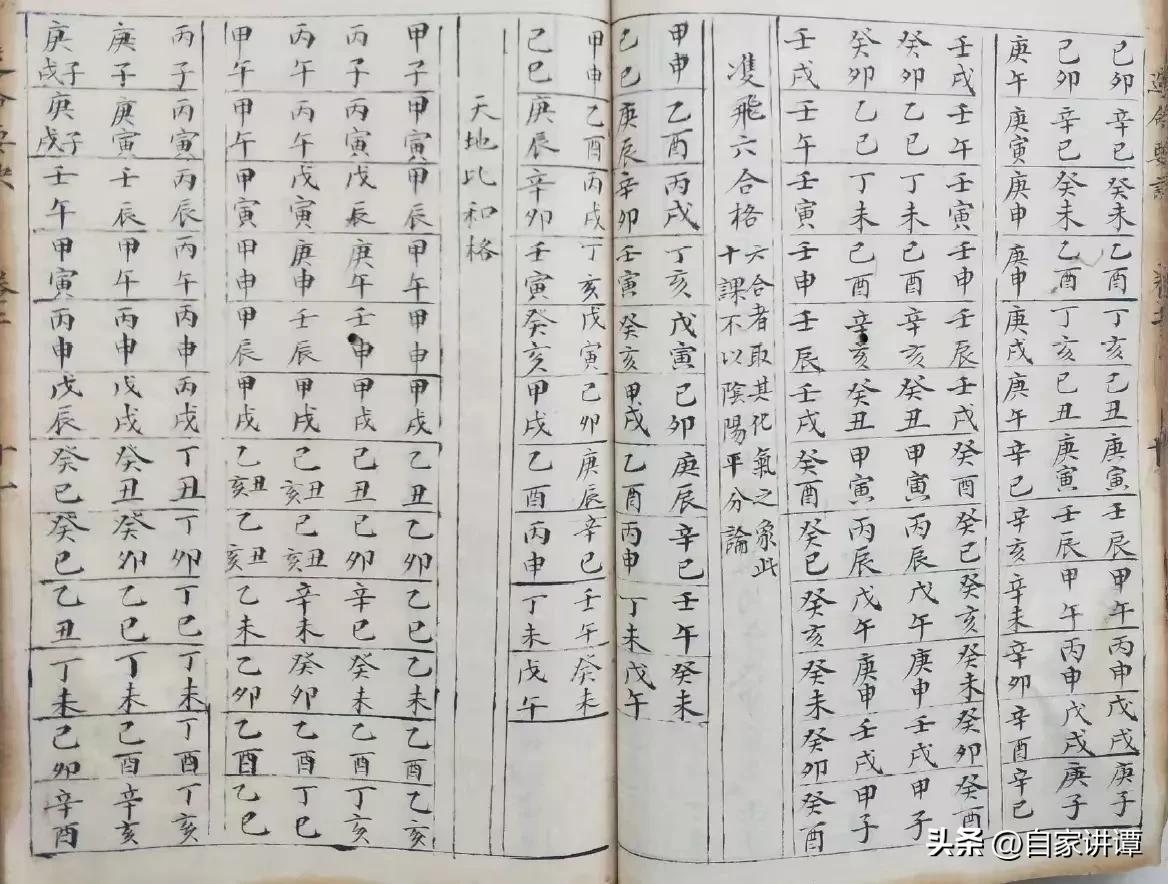 己卯 辛巳 癸未 乙酉 丁亥 己丑 庚寅 壬辰 甲午 丙申 戊戌 庚子
己卯 辛巳 癸未 乙酉 丁亥 己丑 庚寅 壬辰 甲午 丙申 戊戌 庚子
庚午 庚寅 庚申 庚申 庚戌 庚午 辛巳 辛亥 辛未 辛卯 辛酉 辛巳
壬戌 壬午 壬寅 壬申 壬辰 壬戌 癸酉 癸巳 癸亥 癸未 癸卯 癸酉
癸卯 乙巳 丁未 己酉 辛亥 癸丑 甲寅 丙辰 戊午 庚申 壬戌 甲子
癸卯 乙巳 丁未 己酉 辛亥 癸丑 甲寅 丙辰 戊午 庚申 壬戌 甲子
壬戌 壬午 壬寅 壬申 壬辰 壬戌 癸酉 癸巳 癸亥 癸未 癸卯 癸酉
飛六合格
六合者取其化氣之象此
十課不以陰陽平分論
甲申 乙酉 丙戌 丁亥 戊寅 己卯 庚辰 辛巳 壬午 癸未
己巳 庚辰 辛卯 壬寅 癸亥 甲戌 乙酉 丙申 丁未 戊午
甲申 乙酉 丙戌 丁亥 戊寅 己卯 庚辰 辛巳 壬午 癸未
己巳 庚辰 辛卯 壬寅 癸亥 甲戌 乙酉 丙申 丁未 戊午
天地比和格
甲子 甲寅 甲辰 甲午 甲申 甲戌 乙丑 乙卯 乙巳 乙未 乙酉 乙亥
丙子 丙寅 戊辰 庚午 壬申 甲戌 己丑 己卯 辛巳 癸未 乙酉 丁亥
丙午 丙午 戊寅 庚申 壬辰 甲戌 己丑亥 己丑亥 辛未 癸卯 乙酉 丁巳
甲午 甲午 甲寅 甲申 甲辰 甲戌 乙丑亥 乙丑亥 乙未 乙卯 乙酉 乙巳
丙子 丙寅 丙辰 丙午 丙申 丙戌 丁丑 丁卯 丁巳 丁未 丁酉 丁亥
庚子 庚寅 壬辰 甲午 丙申 戊戌 癸丑 癸卯 乙巳 丁未 己酉 辛亥
庚子戌 庚子戌 壬午 甲寅 丙申 戊辰 癸巳 癸巳 乙丑 丁未 己卯 辛酉
头条 @自家讲谭